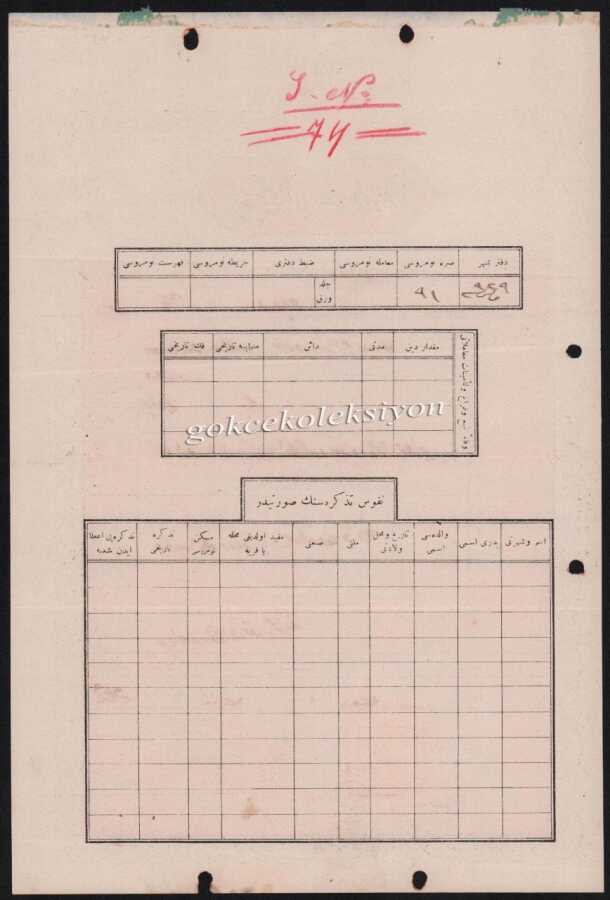 S. No
74
دفتر شهر صره نومروسی معامله نومروسی ضبط دفتری خریطه نومروسی فهرست نومروسی
۹۱ جلد
ورق
مقدار دین مدتی دائن تاریخی فك تاریخی
gokcekoleksiyon
نفوس تذکره‌سنك صورتیدر
اسم وشهرتی پدری اسمی والده‌سی اسمی تاریخ ومحل ولادتی ملتی صنعتی مقید اولدیغی محله یا قریه مسكن نومروسی تذکره تاریخی تذکره‌یی اعطا ایدن شعبه